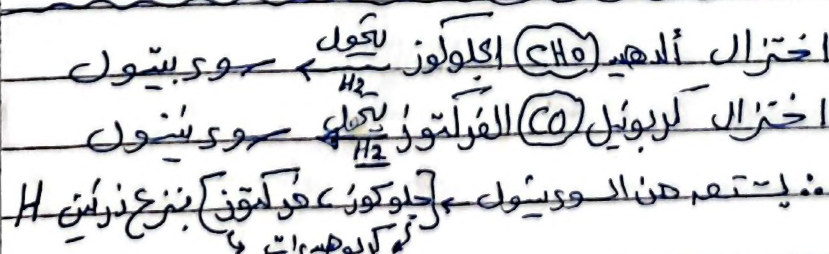 اختزال ألدهيد (CHO) الجلوكوز يتحول H2 ← سوربيتول
اختزال كربونيل (CO) الفركتوز يتحول H2 ← سوربيتول
من السوربيتول ← [جلوكوز، فركتوز] بنزع ذرتين H
كربوهيدرات